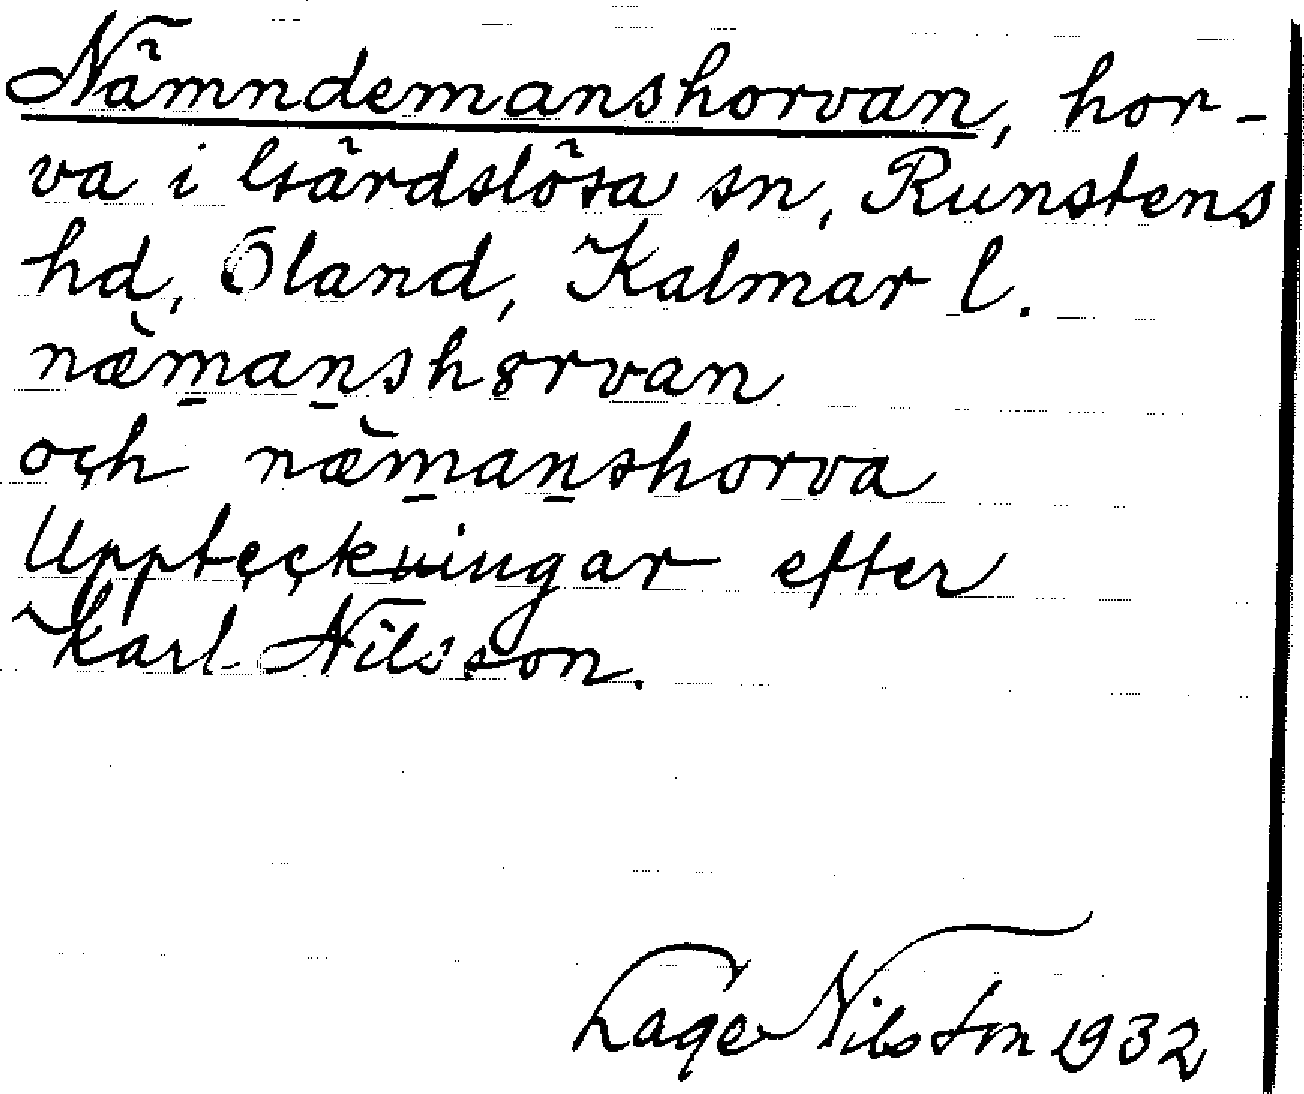 Nämndemanshorvan, hor-
va i Gärdslösa sn, Runstens
hd, Öland, Kalmar l.
næ̀m̲an̲shȣrvan
och næ̀m̲an̲shorva
Uppteckningar efter
Karl Nilsson.
Lage Nilsson 1932